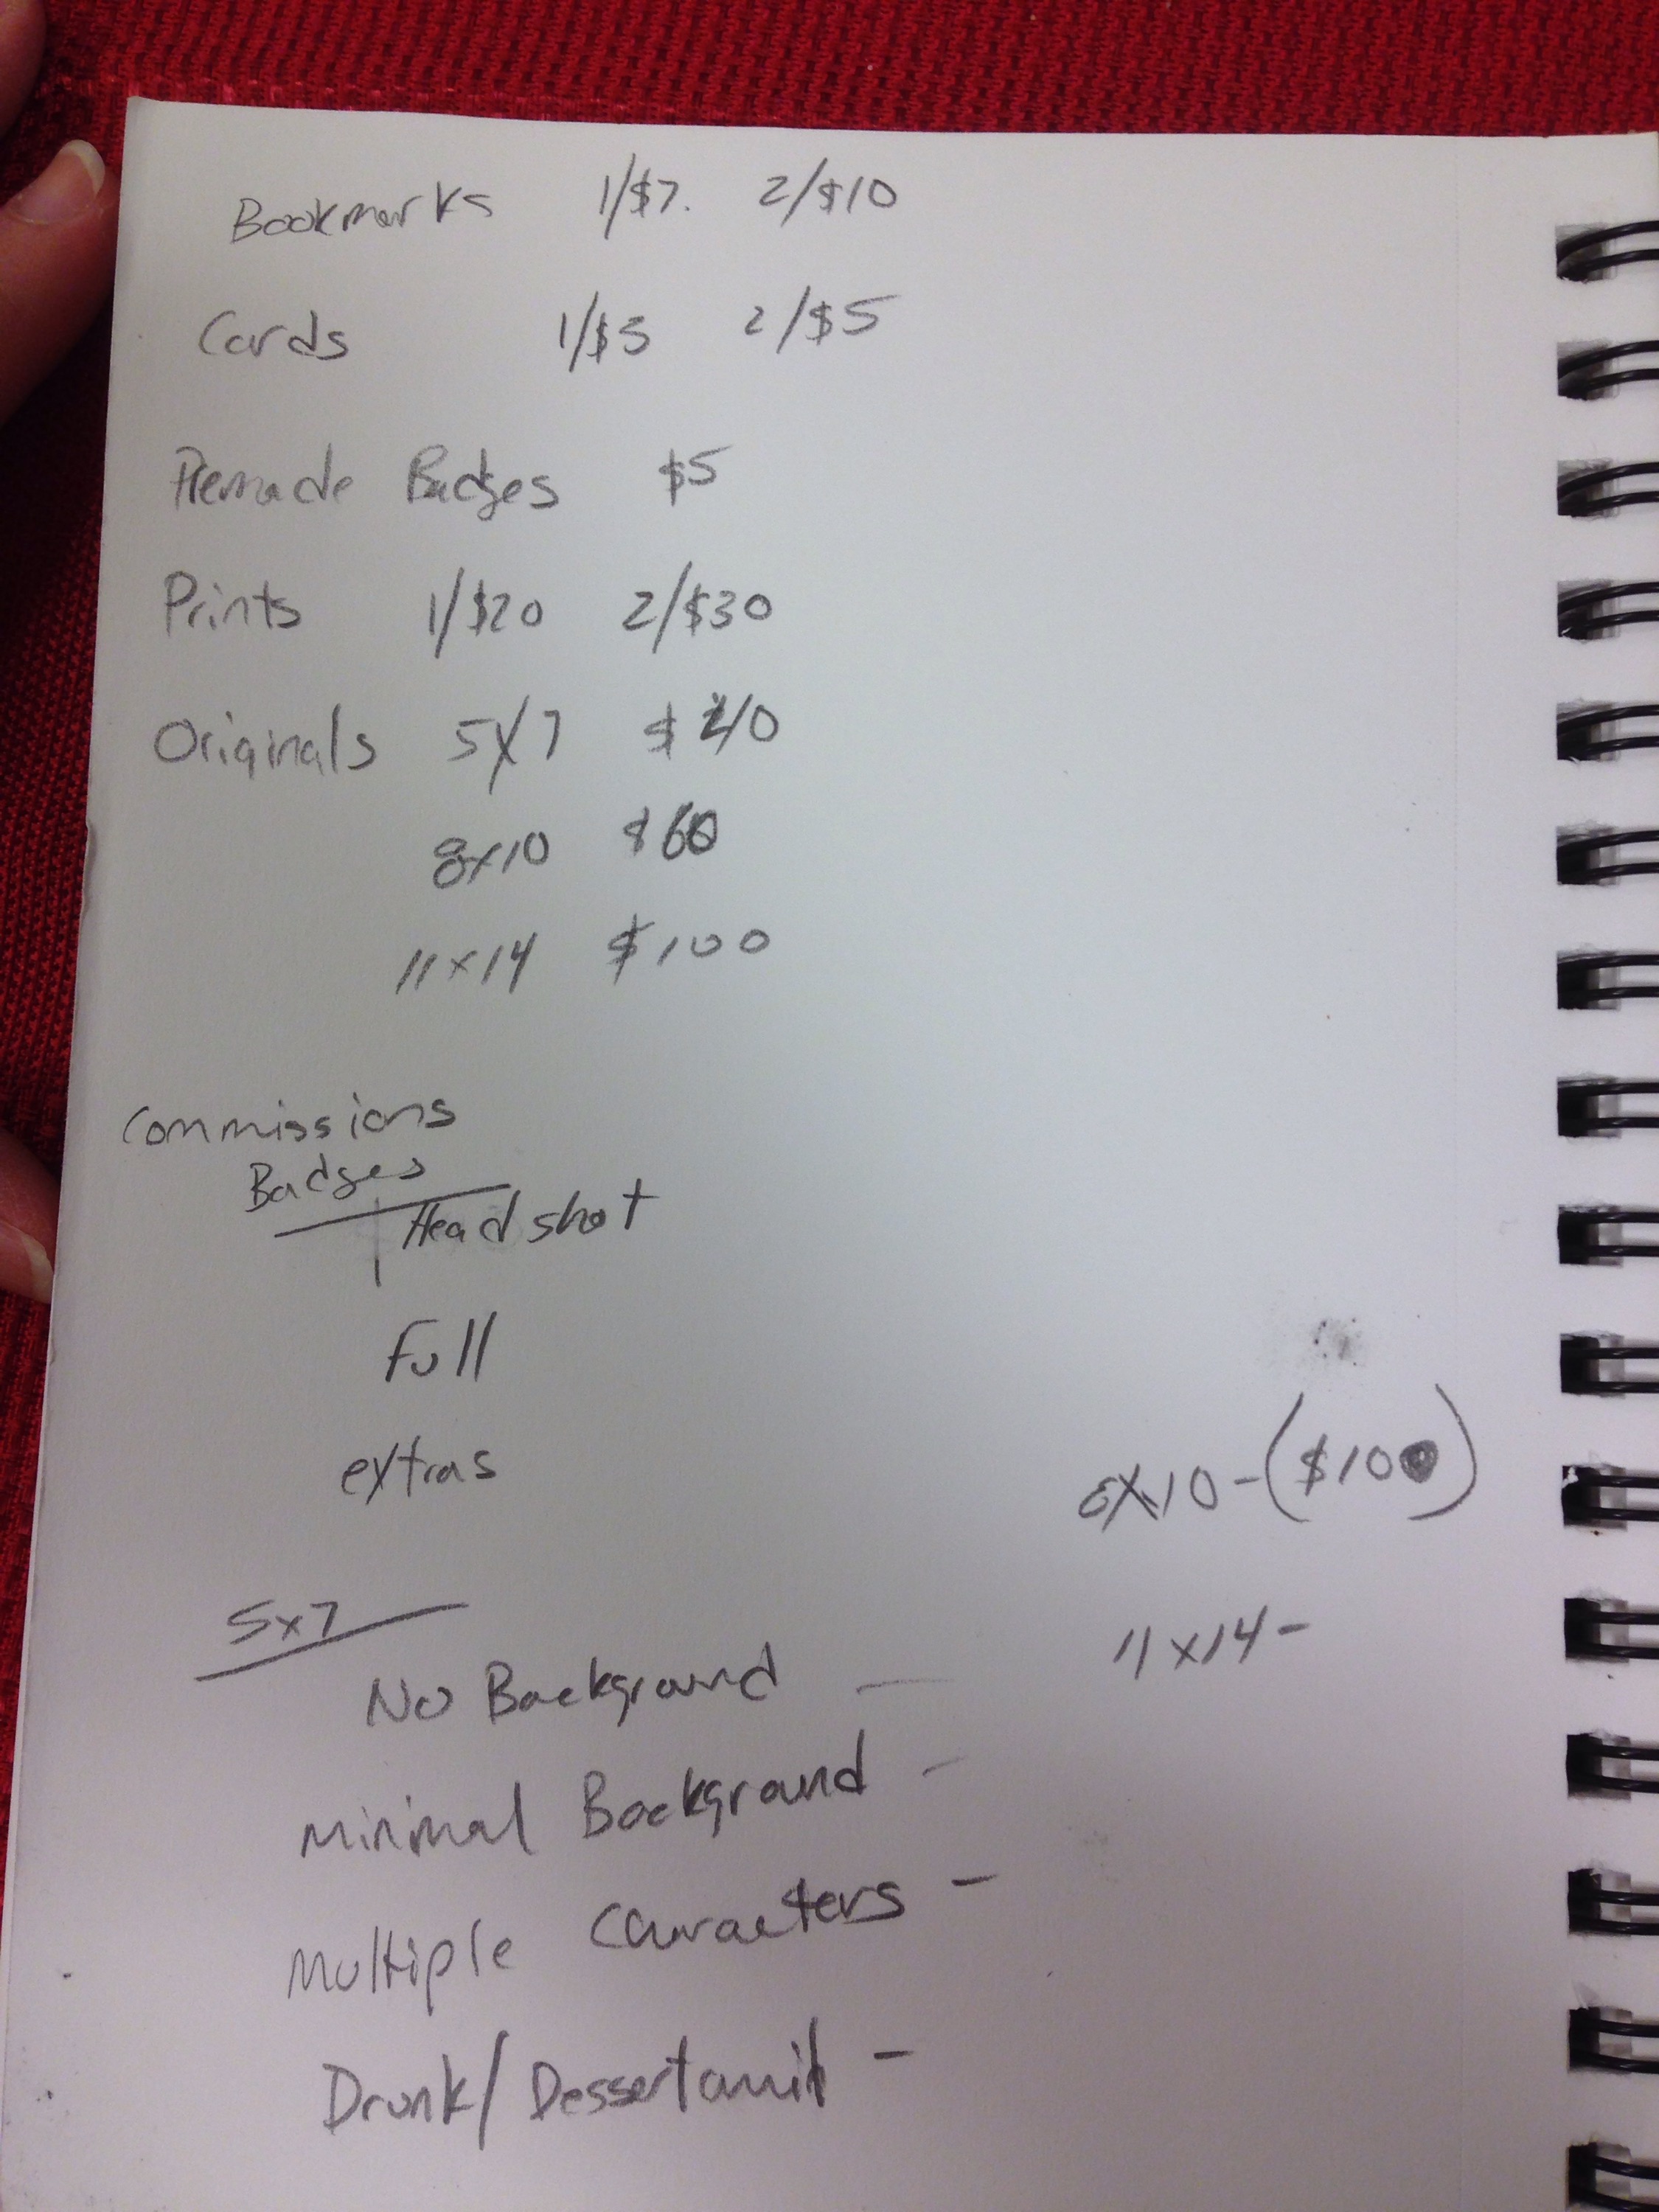 Bookmarks 1/$7. 2/$10
Cards 1/$3 2/$5
Premade Badges $5
Prints 1/$20 2/$30
Originals 5x7 $40
8x10 $60
11x14 $100
Commissions
Badges
Headshot
Full
extras
5x7
No Background -
Minimal Background -
Multiple Characters -
Drunk/
8x10 - ($100)
11x14 -